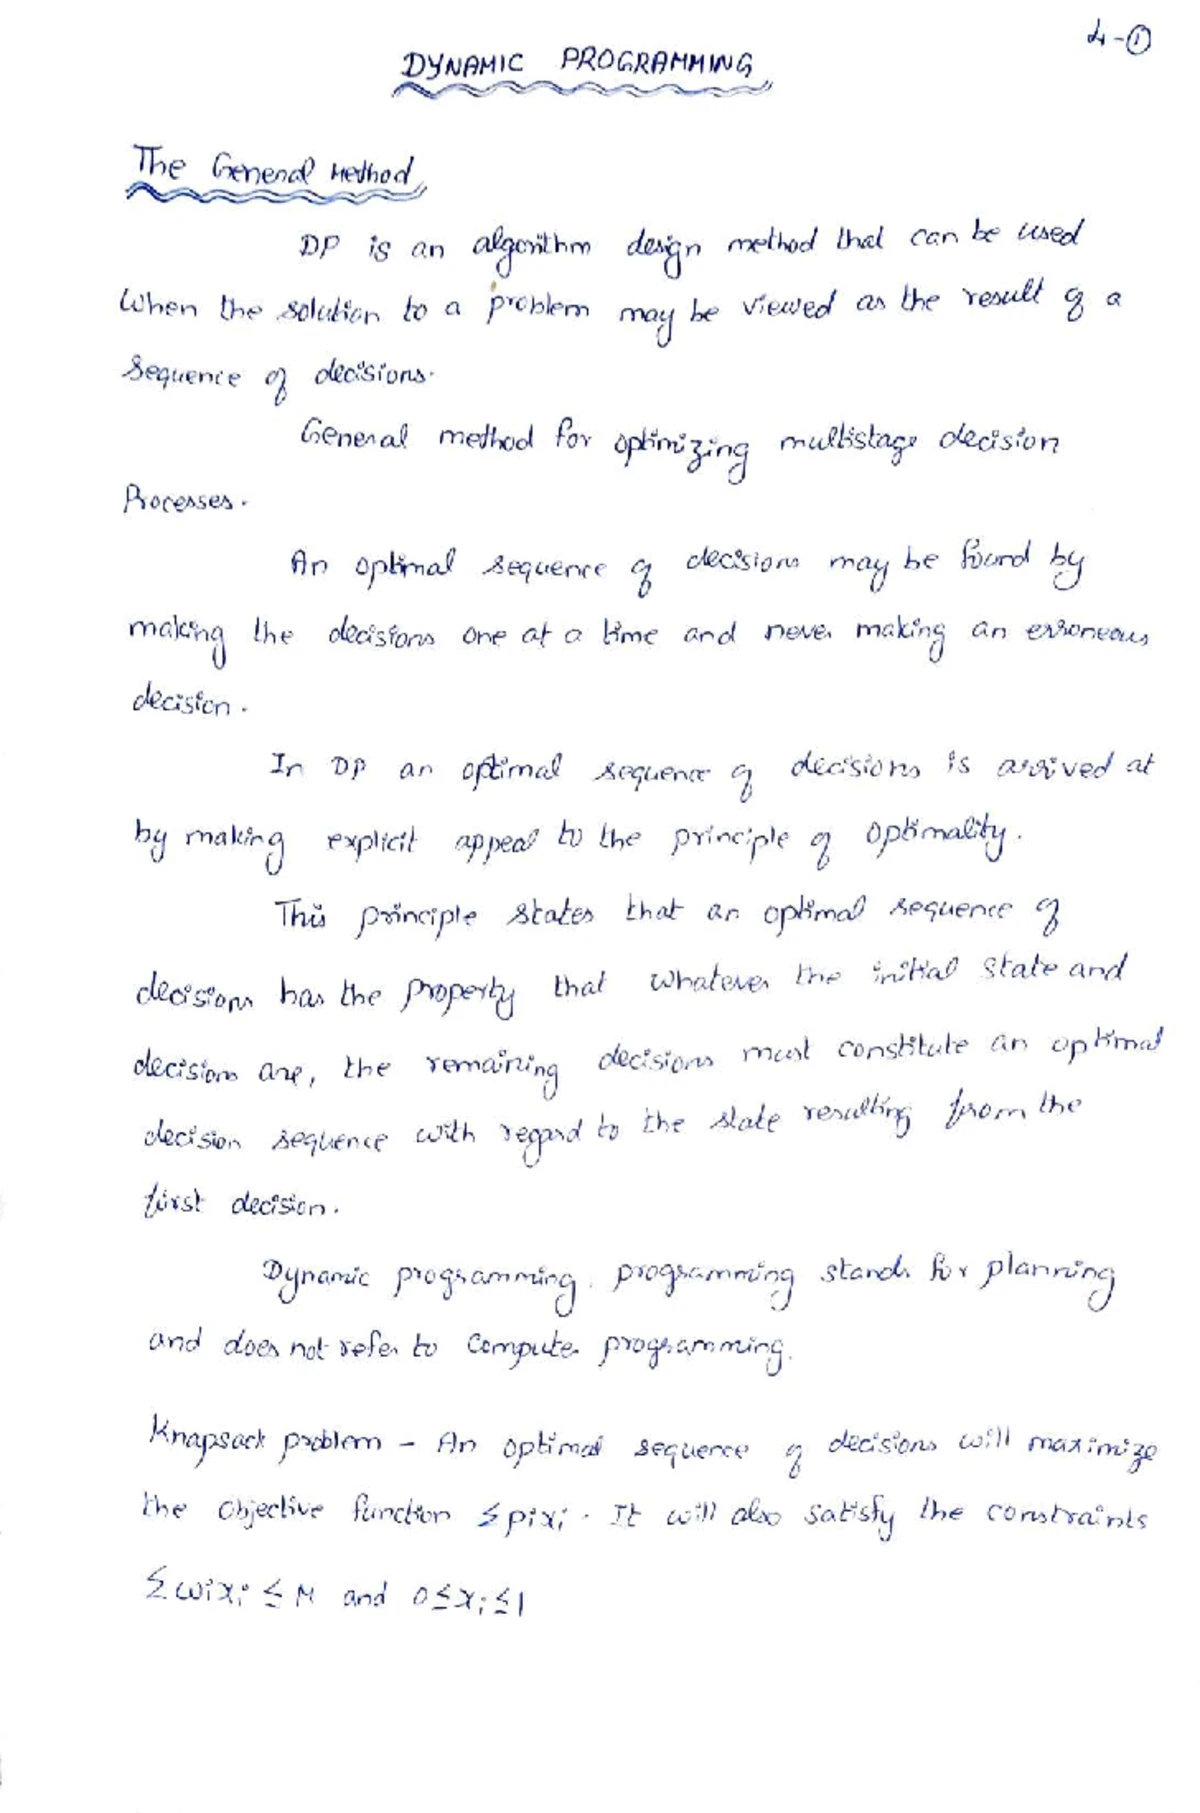 4-①
DYNAMIC PROGRAMMING
The General Method
DP is an algorithm design method that can be used
When the solution to a problem may be viewed as the result of a
sequence of decisions.
General method for optimizing multistage decision
Processes.
An optimal sequence of decisions may be found by
making the decisions one at a time and never making an erroneous
decision.
In DP an optimal sequence of decisions is arrived at
by making explicit appeal to the principle of optimality.
This principle states that an optimal sequence of
decisions has the property that whatever the initial state and
decisions are, the remaining decisions must constitute an optimal
decision sequence with regard to the state resulting from the
first decision.
Dynamic programming. programming stands for planning
and does not refer to Computer programming.
Knapsack problem - An optimal sequence of decisions will maximize
the objective function Σpixi. It will also satisfy the constraints
Σwixi ≤ M and 0≤xi≤1